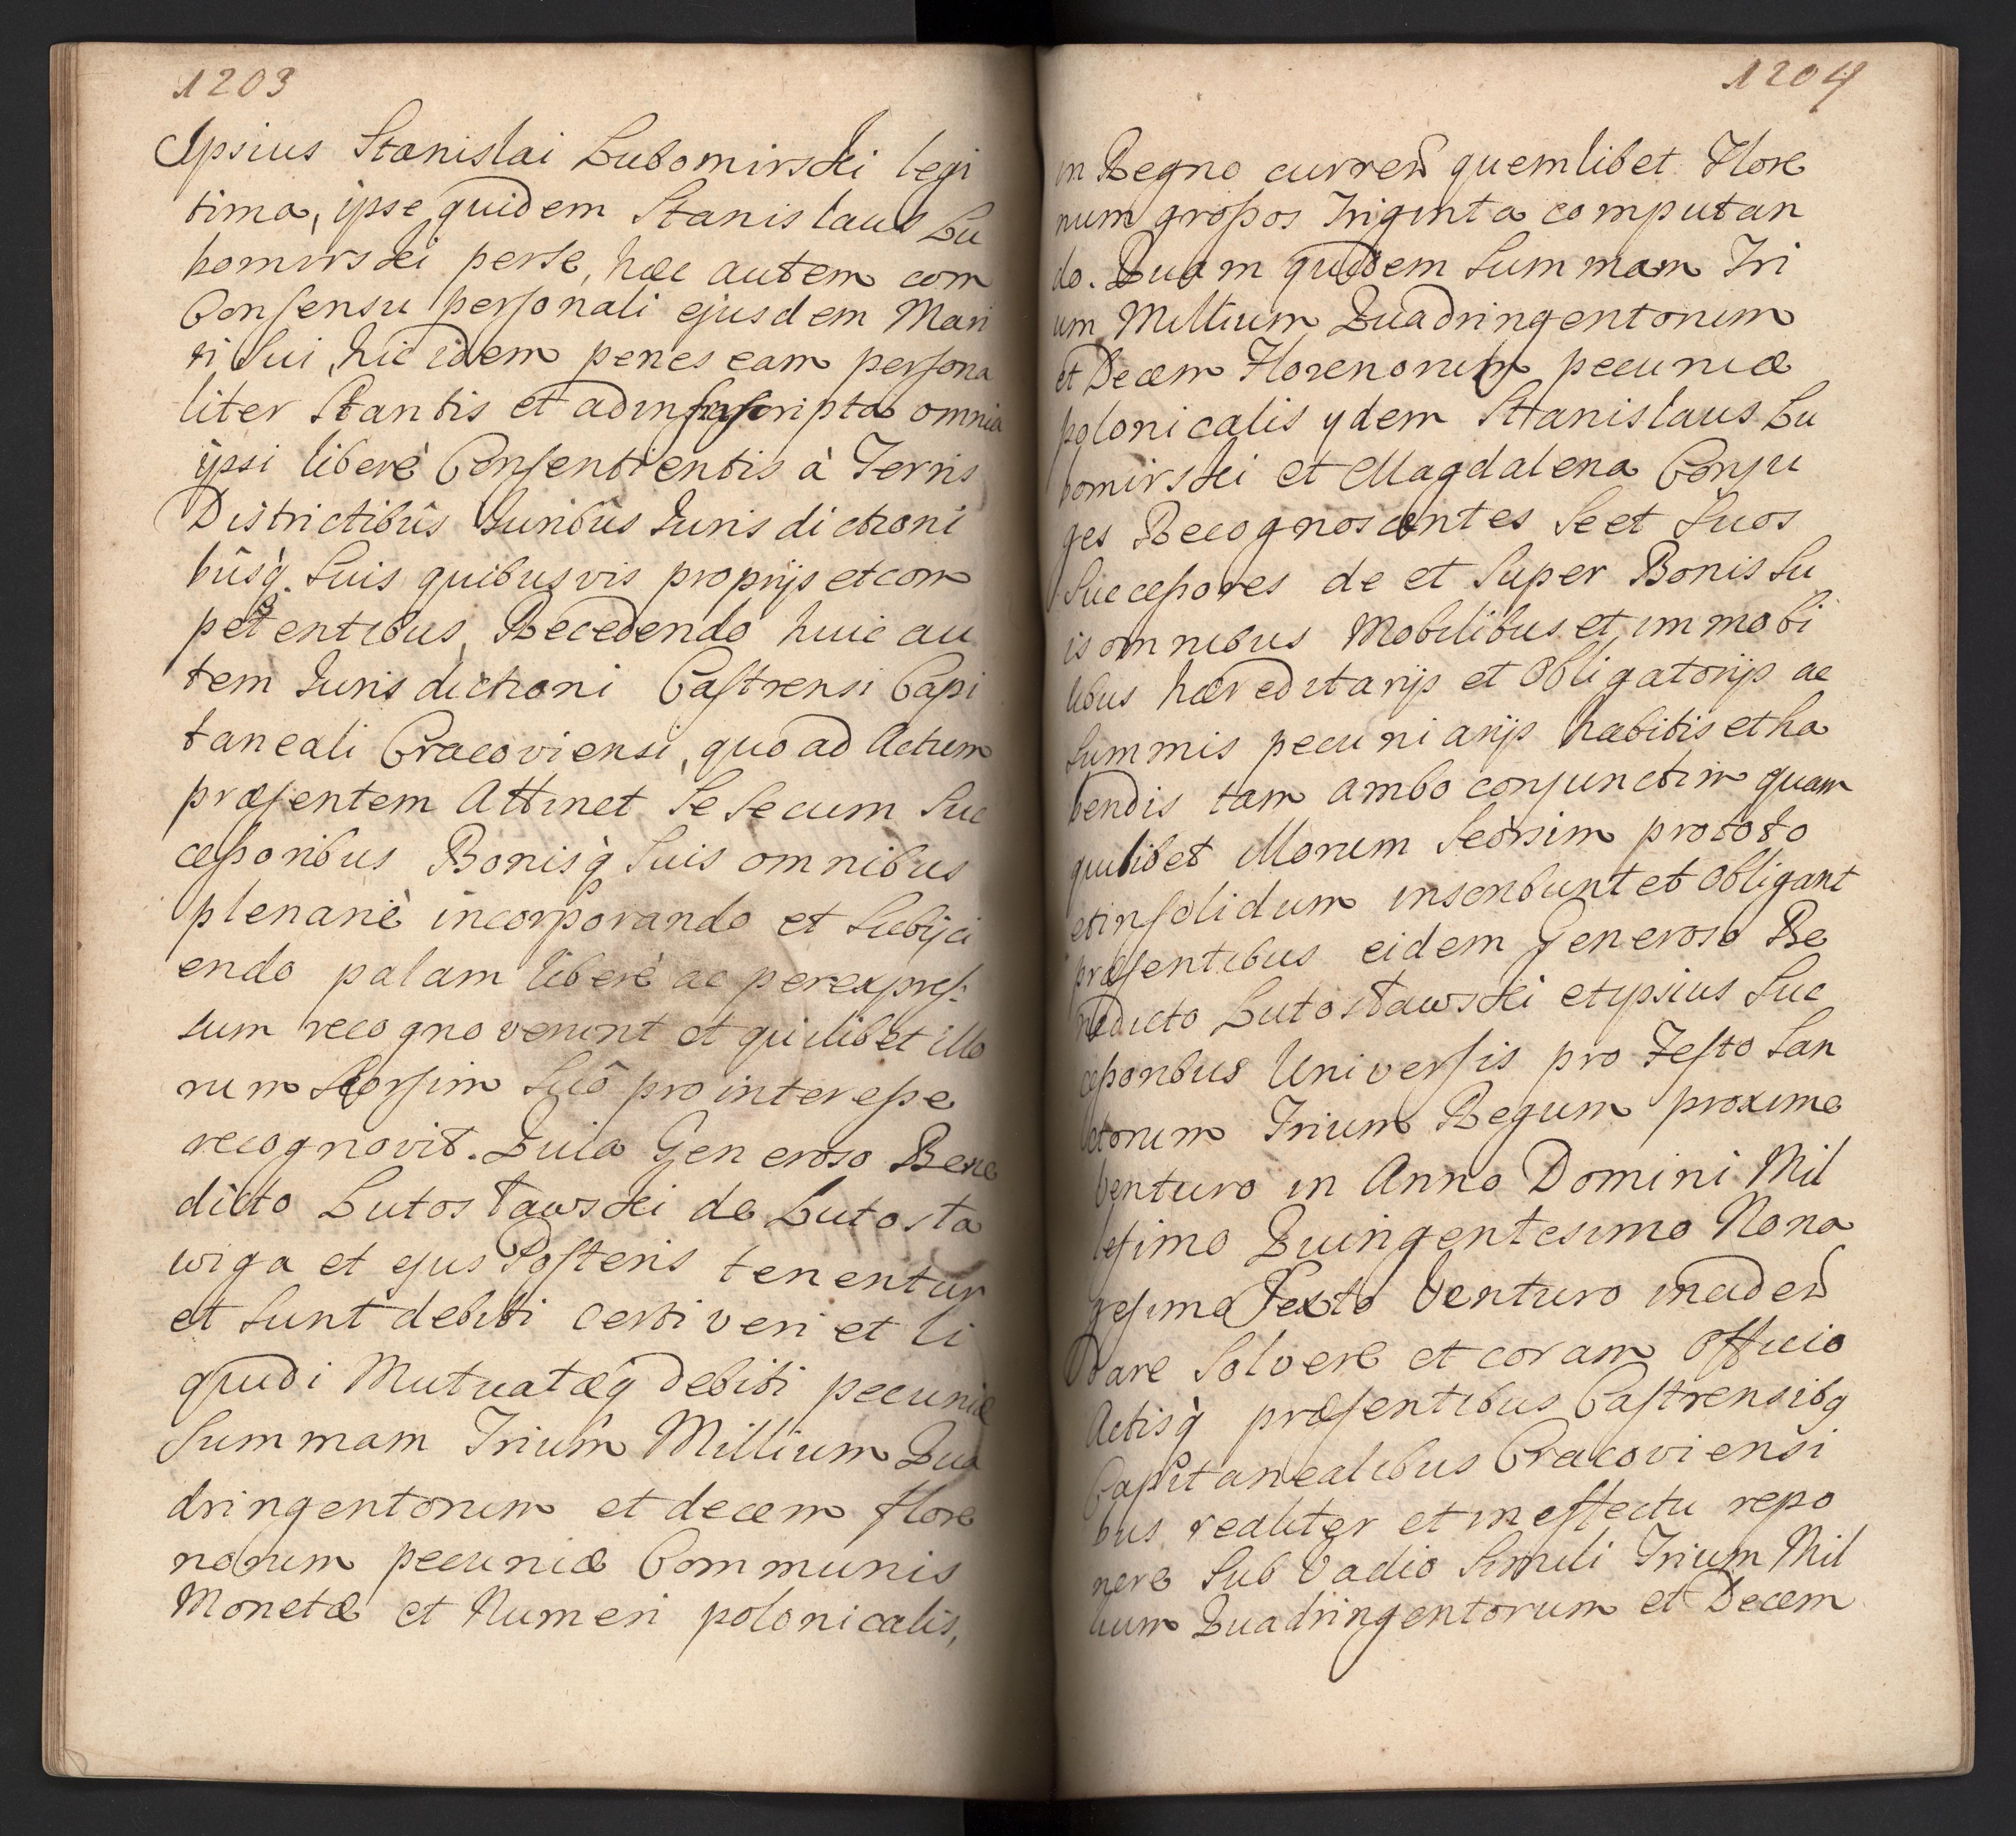 1203
Ipsius Stanislai Lubomirski legi
tima, ipse quidem Stanislaus Lu
bomirski perse, hæc autem com
Consensu personali ejusdem Mari
ti Sui, hic idem penes eam persona
liter Stantis et ad infrascripta omnia
ipsi liberè Consentientis à Terris
Districtibûs Iuribûs Iurisdictioni
bûsq̀ Suis quibusvis proprijs et com
petentibus, Recedendo huic au
tem Iurisdictioni Castrensi Capi
taneali Cracoviensi, quo ad Actum
præsentem Attinet Se Secum Suc
cessoribus Bonisq̀ Suis omnibus
plenariè incorporando et Subijci
endo palam liberè ac per expres
sum recognoverunt et quilibet illo
rum Seorsim Suô pro interesse
recognovit. Quia Generoso Bene
dicto Lutosławski de Lutosła
wiga et ejus Posteris tenentur
et Sunt debiti certi veri et li
quidi Mutuatæq̀ debiti pecuniæ
Summam Trium Millium Qua
dringentorum et decem flore
norum pecuniæ Communis
Monetæ et Numeri polonicalis,
1204
in Regno curreñ quemlibet Flore
num grossos Triginta computan
do. Quam quidem Summam Tri
um Millium Quadringentorum
et Decem Florenorum pecuniæ
polonicalis ydem Stanislaus Lu
bomirski et Magdalena Conju
ges Recognoscentes Se et Suos
Successores de et Super Bonis Su
is omnibus Mobilibus et immobi
libus hæreditarijs et Obligatorijs ac
Summis pecuniarijs habitis et ha
bendis tam ambo conjunctim quam
quilibet illorum Seorsim pro toto
et insolidum inscribunt et Obligant
præsentibus eidem Generoso Be
nedicto Lutosławski et ipsius Suc
cessoribus Universis pro Festo San
ctorum Trium Regum proxime
venturo in Anno Domini Mil
lesimo Quingentesimo Nona
gesimo Sexto Venturo incadeñ
Dare Solvere et coram Officio
Actisq̀ præsentibus Castrensibq
Capitanealibus Cracoviensi
bus realiter et in effectu repo
nere Sub Vadio Simili Trium Mil
lium Quadringentorum et Decem